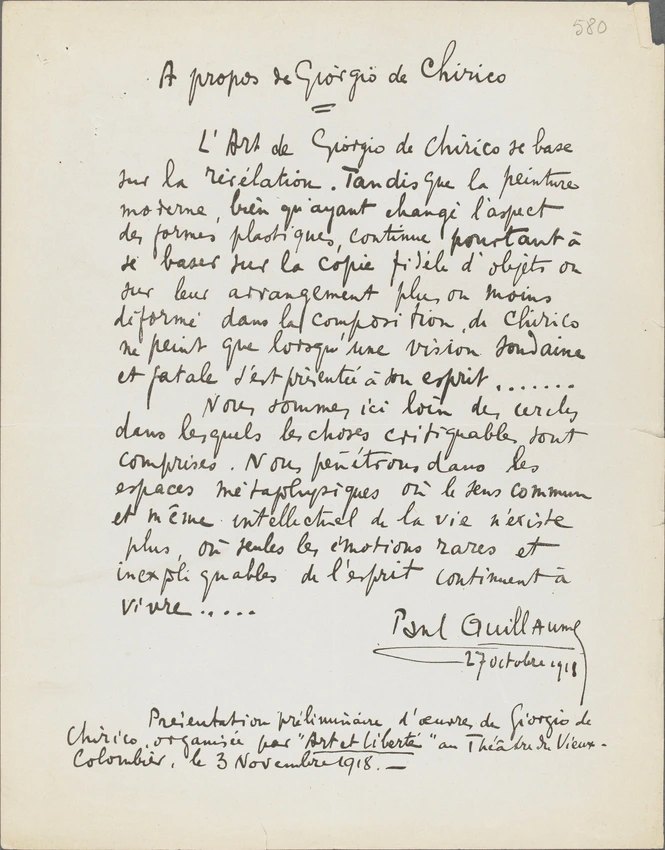 580
A propos de Giorgio de Chirico
L'Art de Giorgio de Chirico se base
sur la révélation. Tandis que la peinture
moderne, bien qu'ayant changé l'aspect
des formes plastiques, continue pourtant à
se baser sur la copie fidèle d'objets ou
sur leur arrangement plus ou moins
déformé dans la composition, de Chirico
ne peint que lorsqu'une vision soudaine
et fatale s'est présentée à son esprit.......
Nous sommes ici loin des cercles
dans lesquels les choses critiquables sont
comprises. Nous pénétrons dans les
espaces métaphysiques où le sens commun
et même intellectuel de la vie n'existe
plus, où seules les émotions rares et
inexpliquables de l'esprit continuent à
vivre.....
Paul Guillaume
27 octobre 1918
Présentation préliminaire d'œuvres de Giorgio de
Chirico, organisée par "Art et Liberté" au Théâtre du Vieux-
Colombier, le 3 Novembre 1918. —